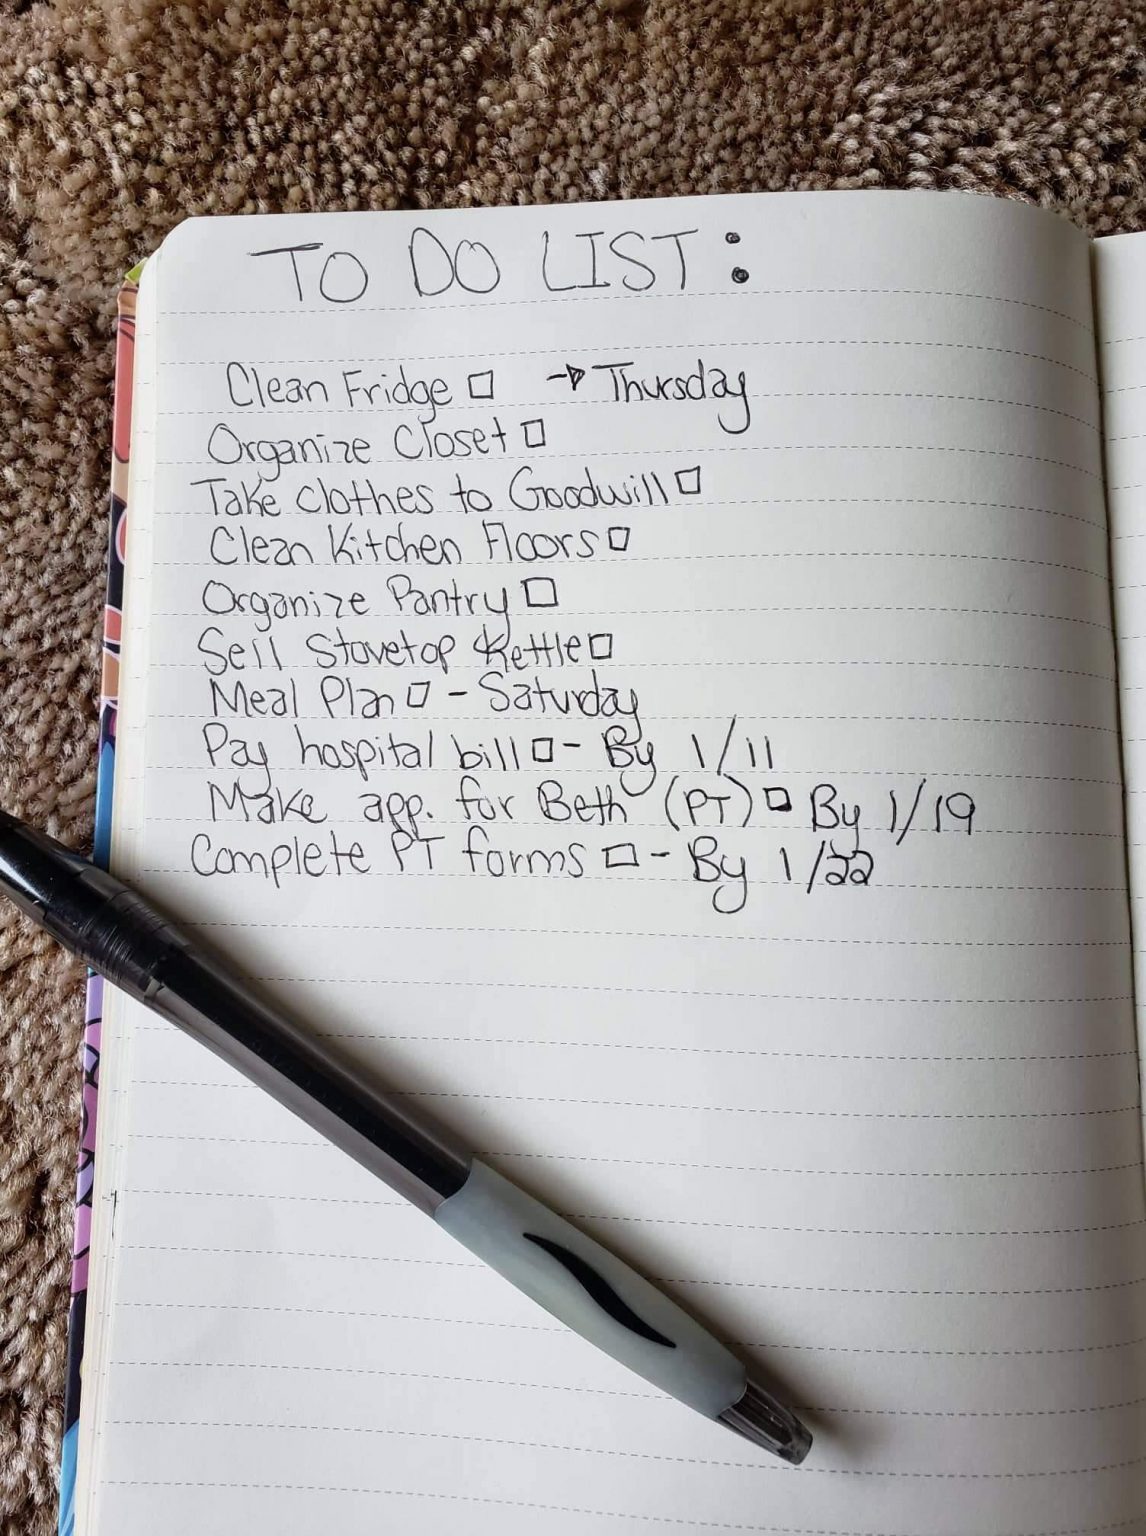 TO DO LIST:
Clean Fridge □ → Thursday
Organize Closet □
Take clothes to Goodwill □
Clean Kitchen Floors □
Organize Pantry □
Sell Stovetop Kettle □
Meal Plan □ - Saturday
Pay hospital bill □ - By 1/11
Make app. for Beth (PT) □ By 1/19
Complete PT forms □ - By 1/22